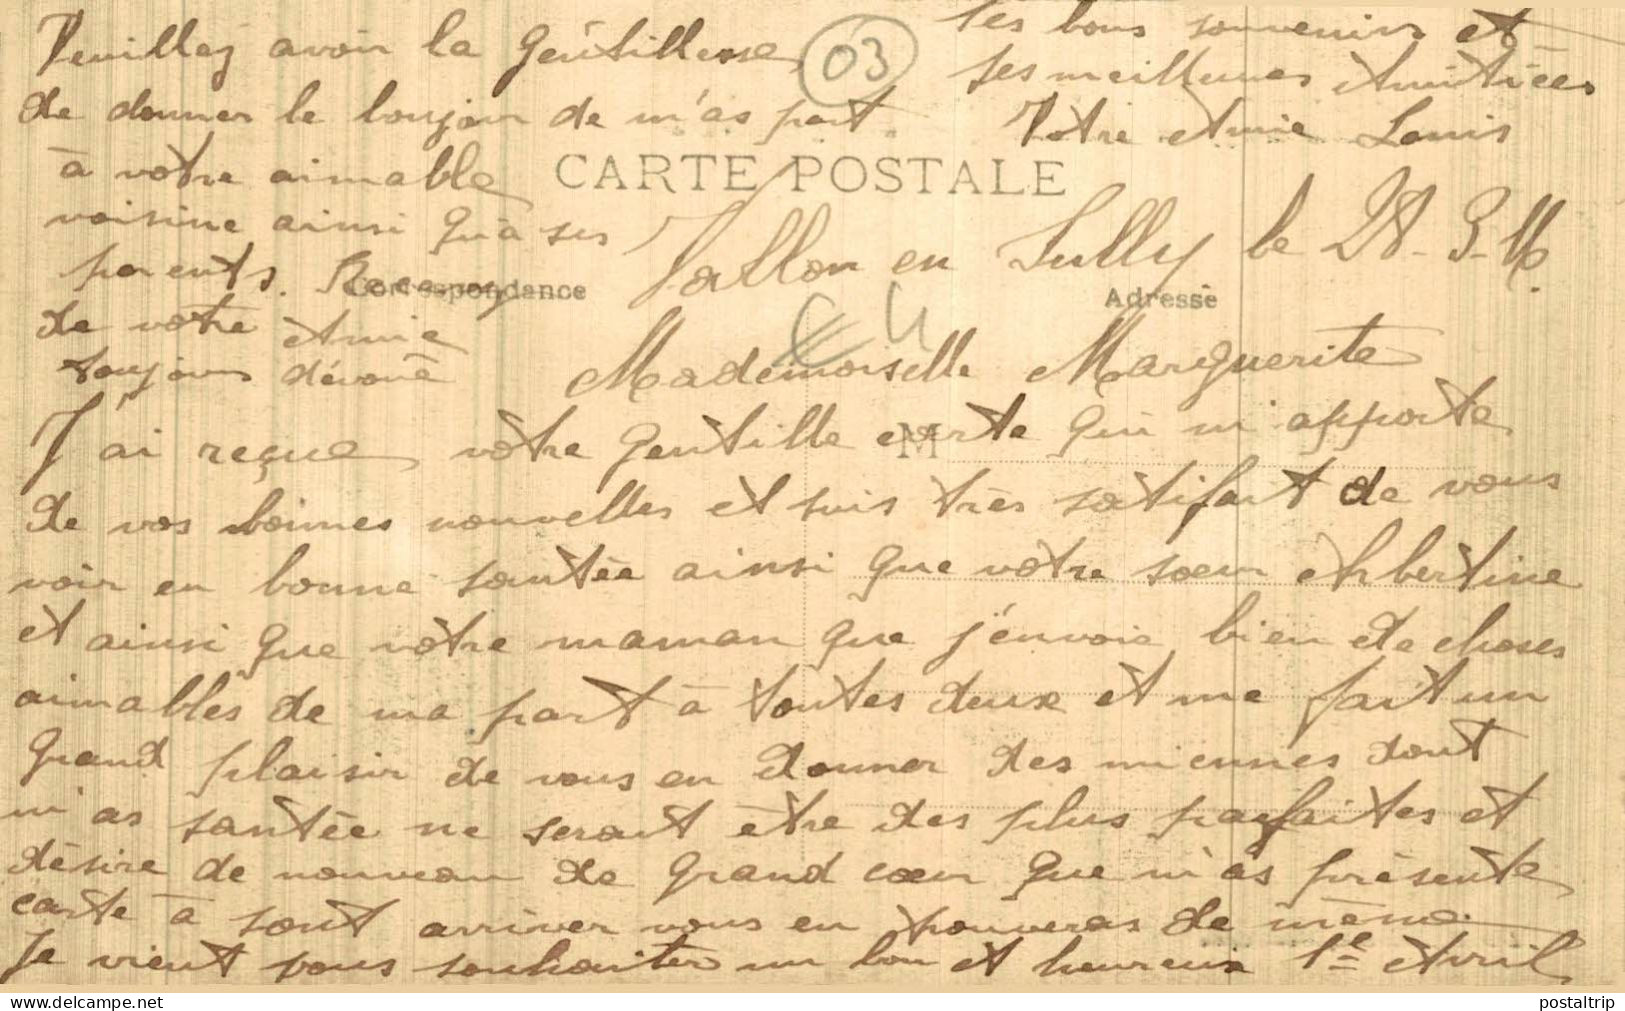 Veuillez avoir la gentillesse
de donner le bonjour de m'as part
à votre aimable
voisine ainsi qu'à ses
parents. Recevez
de votre Amie
toujours dévoué
03
Ses bons souvenirs et
ses meilleures Amitiées
Votre Amie Louis
CARTE POSTALE
Correspondance
Adresse
Jallon en Sully le
Mademoiselle Marguerite
M
J'ai reçue votre gentille carte qui m'apporte
de vos bonnes nouvelles et suis très satifait de vous
voir en bonne santée ainsi que votre sœur Albertine
et ainsi que vôtre maman que j'envoie bien de choses
aimables de ma part à toutes deux et me fait un
grand plaisir de vous en donner des miennes dont
m'as santée ne serait être des plus parfaites et
désire de nouveau de grand cœur que m'as présente
carte à sont arriver vous en trouveras de même.
Je vient vous souhaiter un bon et heureux 1er Avril
delcampe.net
postaltrip